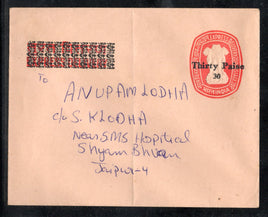 Thirty Paise
30
To
ANUPAM LODHA
c/o S. K LODHA
Near SMS Hospital
Shyam Bhwan
Jaipur-4